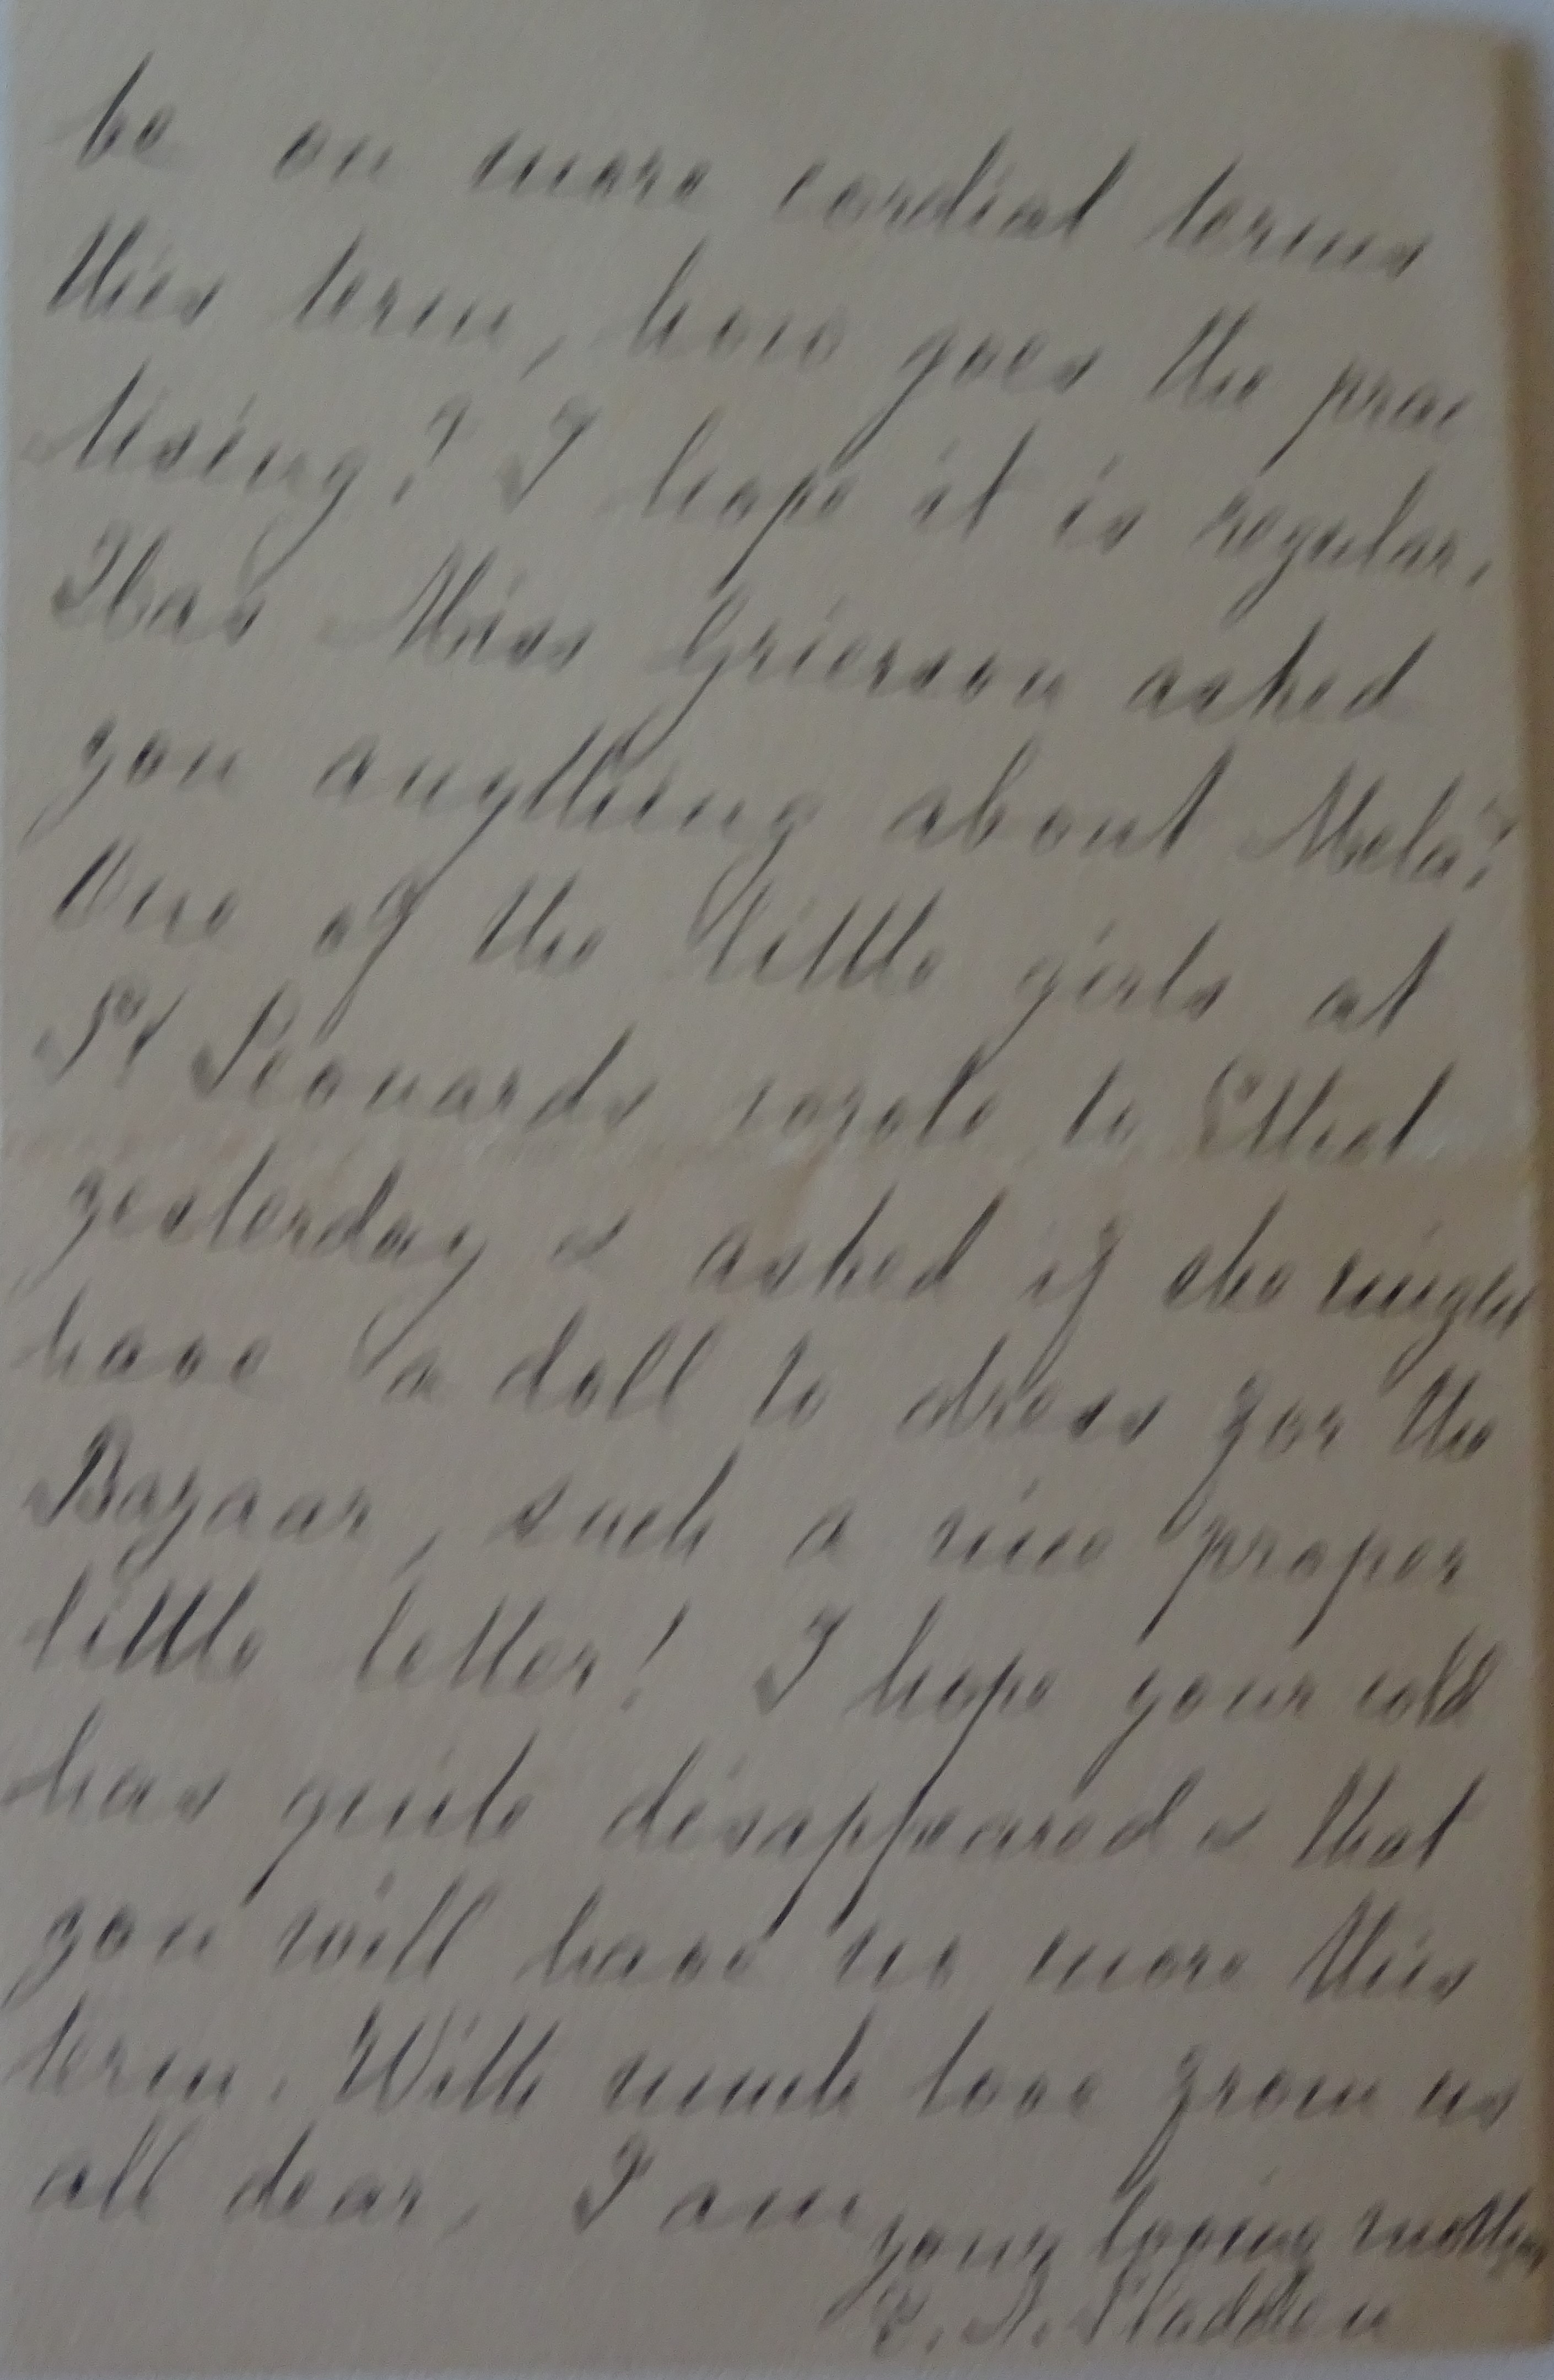 be on more cordial terms
this term, how goes the prac
tising? I hope it is regular.
Has Miss Grierson asked
you anything about Mela?
One of the little girls at
St Leonards wrote to Ethel
yesterday & asked if she might
have a doll to dress for the
Bazaar, such a nice proper
little letter! I hope your cold
has quite disappeared & that
you will have no more this
term. With much love from us
all dear, I am
your loving mother
E. A. Sladden